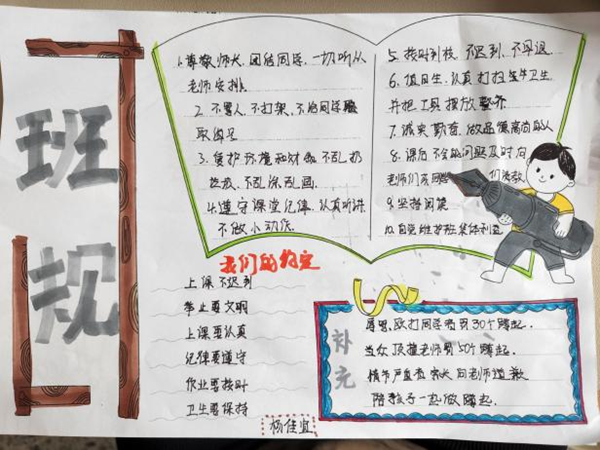 班规
1.尊敬师长、团结同学、一切听从
老师安排
2.不骂人、不打架、不给同学
取绰号
3.爱护环境和财物、不乱扔
垃圾、不乱涂乱画.
4.遵守课堂纪律、认真听讲
不做小动作.
5.按时到校 不迟到、不早退
6.值日生、认真打扫 卫生
并把工具摆放整齐
7.诚实 勤奋、做品德高尚的人
8.课后不会的问题及时向
老师们 同学们 请教
9.坚持阅读
10.自觉维护班集体利益
我们的约定
上课不迟到
举止要文明
上课要认真
纪律要遵守
作业要按时
卫生要保持
杨佳宜
补充
辱骂、殴打同学者罚30个蹲起.
当众顶撞老师罚50个蹲起.
情节严重者 家长向老师道歉
陪教子一起做蹲起.